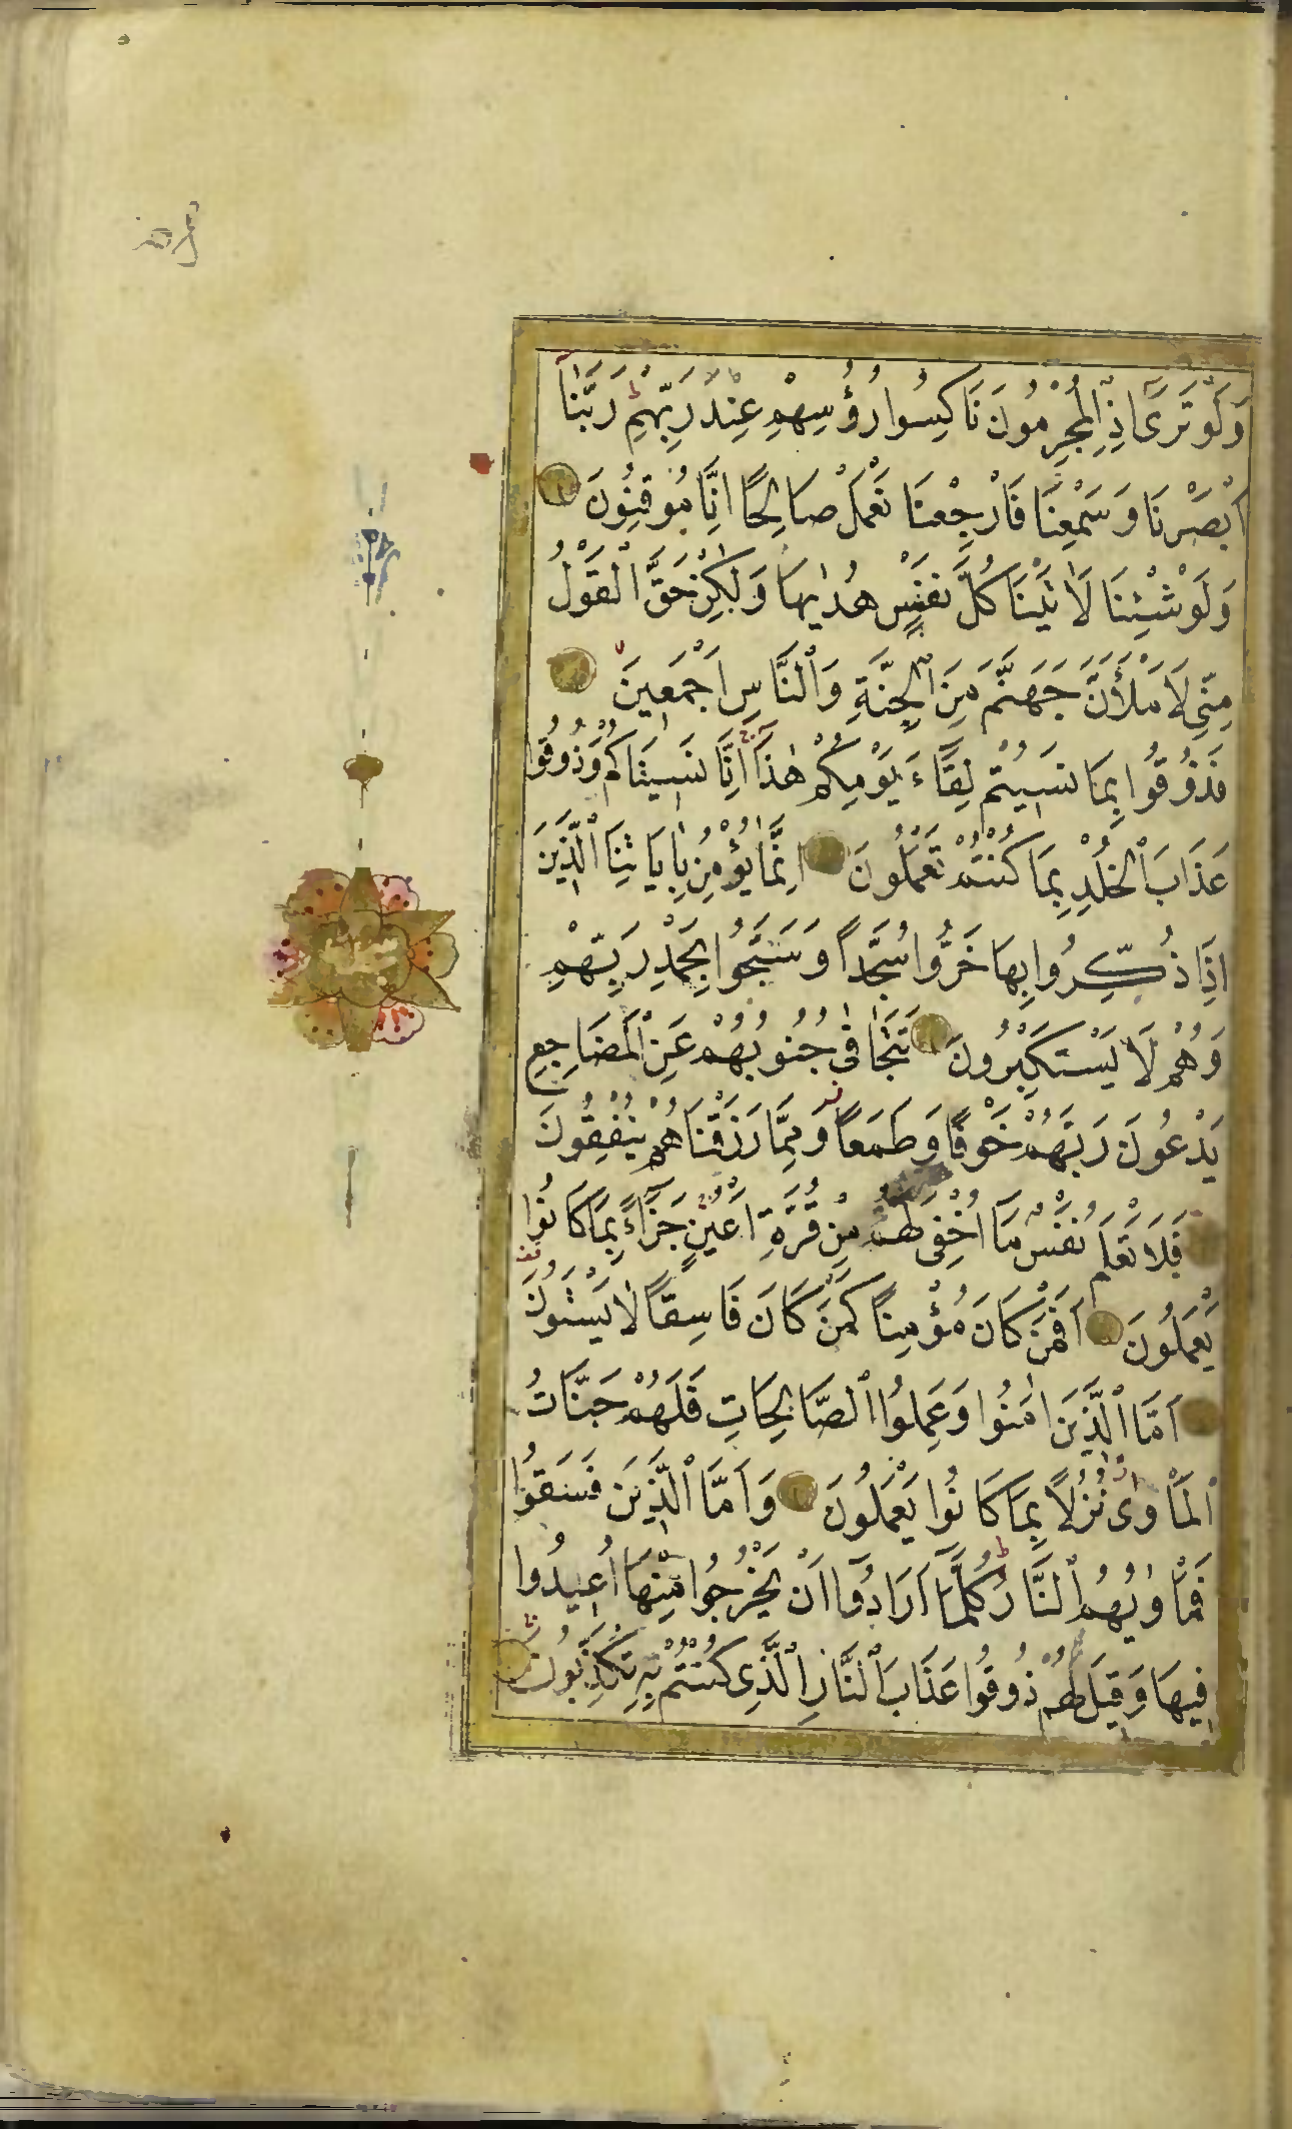 وَلَوْ تَرٰٓى اِذِ الْمُجْرِمُونَ نَاكِسُوا رُؤُسِهِمْ عِنْدَ رَبِّهِمْ رَبَّنَآ
اَبْصَرْنَا وَسَمِعْنَا فَارْجِعْنَا نَعْمَلْ صَالِحًا اِنَّا مُوقِنُونَ
وَلَوْ شِئْنَا لَاٰتَيْنَا كُلَّ نَفْسٍ هُدٰيهَا وَلٰكِنْ حَقَّ الْقَوْلُ
مِنّ۪ى لَاَمْلَأَنَّ جَهَنَّمَ مِنَ الْجِنَّةِ وَالنَّاسِ اَجْمَع۪ينَ
فَذُوقُوا بِمَا نَس۪يتُمْ لِقَٓاءَ يَوْمِكُمْ هٰذَا اِنَّا نَس۪ينَاكُمْ وَذُوقُوا
عَذَابَ الْخُلْدِ بِمَا كُنْتُمْ تَعْمَلُونَ اِنَّمَا يُؤْمِنُ بِاٰيَاتِنَا الَّذ۪ينَ
اِذَا ذُكِّرُوا بِهَا خَرُّوا سُجَّدًا وَسَبَّحُوا بِحَمْدِ رَبِّهِمْ
وَهُمْ لَا يَسْتَكْبِرُونَ تَتَجَافٰى جُنُوبُهُمْ عَنِ الْمَضَاجِعِ
يَدْعُونَ رَبَّهُمْ خَوْفًا وَطَمَعًا وَمِمَّا رَزَقْنَاهُمْ يُنْفِقُونَ
فَلَا تَعْلَمُ نَفْسٌ مَا اُخْفِىَ لَهُمْ مِنْ قُرَّةِ اَعْيُنٍ جَزَٓاءً بِمَا كَانُوا
يَعْمَلُونَ اَفَمَنْ كَانَ مُؤْمِنًا كَمَنْ كَانَ فَاسِقًا لَا يَسْتَوُنَ
اَمَّا الَّذ۪ينَ اٰمَنُوا وَعَمِلُوا الصَّالِحَاتِ فَلَهُمْ جَنَّاتُ
الْمَأْوٰى نُزُلًا بِمَا كَانُوا يَعْمَلُونَ وَاَمَّا الَّذ۪ينَ فَسَقُوا
فَمَأْوٰيهُمُ النَّارُ كُلَّمَٓا اَرَادُٓوا اَنْ يَخْرُجُوا مِنْهَٓا اُع۪يدُوا
ف۪يهَا وَق۪يلَ لَهُمْ ذُوقُوا عَذَابَ النَّارِ الَّذ۪ى كُنْتُمْ بِه۪ تُكَذِّبُونَ